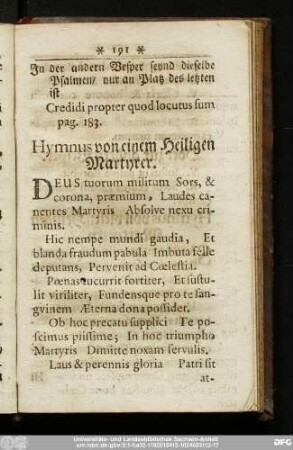 * 191 *
In der andern Vesper seynd dieselbe
Psalmen/ nur an Platz des letzten
ist
Credidi propter quod locutus sum
pag. 183.
Hymnus von einem Heiligen
Martyrer.
DEUS tuorum militum Sors, &
corona, præmium, Laudes ca-
nentes Martyris Absolve nexu cri-
minis.
Hic nempe mundi gaudia, Et
blanda fraudum pabula Imbuta felle
deputans, Pervenit ad Cœlestia.
Pœnas cucurrit fortiter, Et sustu-
lit viriliter, Fundensque pro te san-
gvinem Æterna dona possidet.
Ob hoc precatu supplici Te po-
scimus piissime; In hoc triumpho
Martyris Dimitte noxam servulis.
Laus & perennis gloria Patri sit
at-
Universitäts- und Landesbibliothek Sachsen-Anhalt
DFG